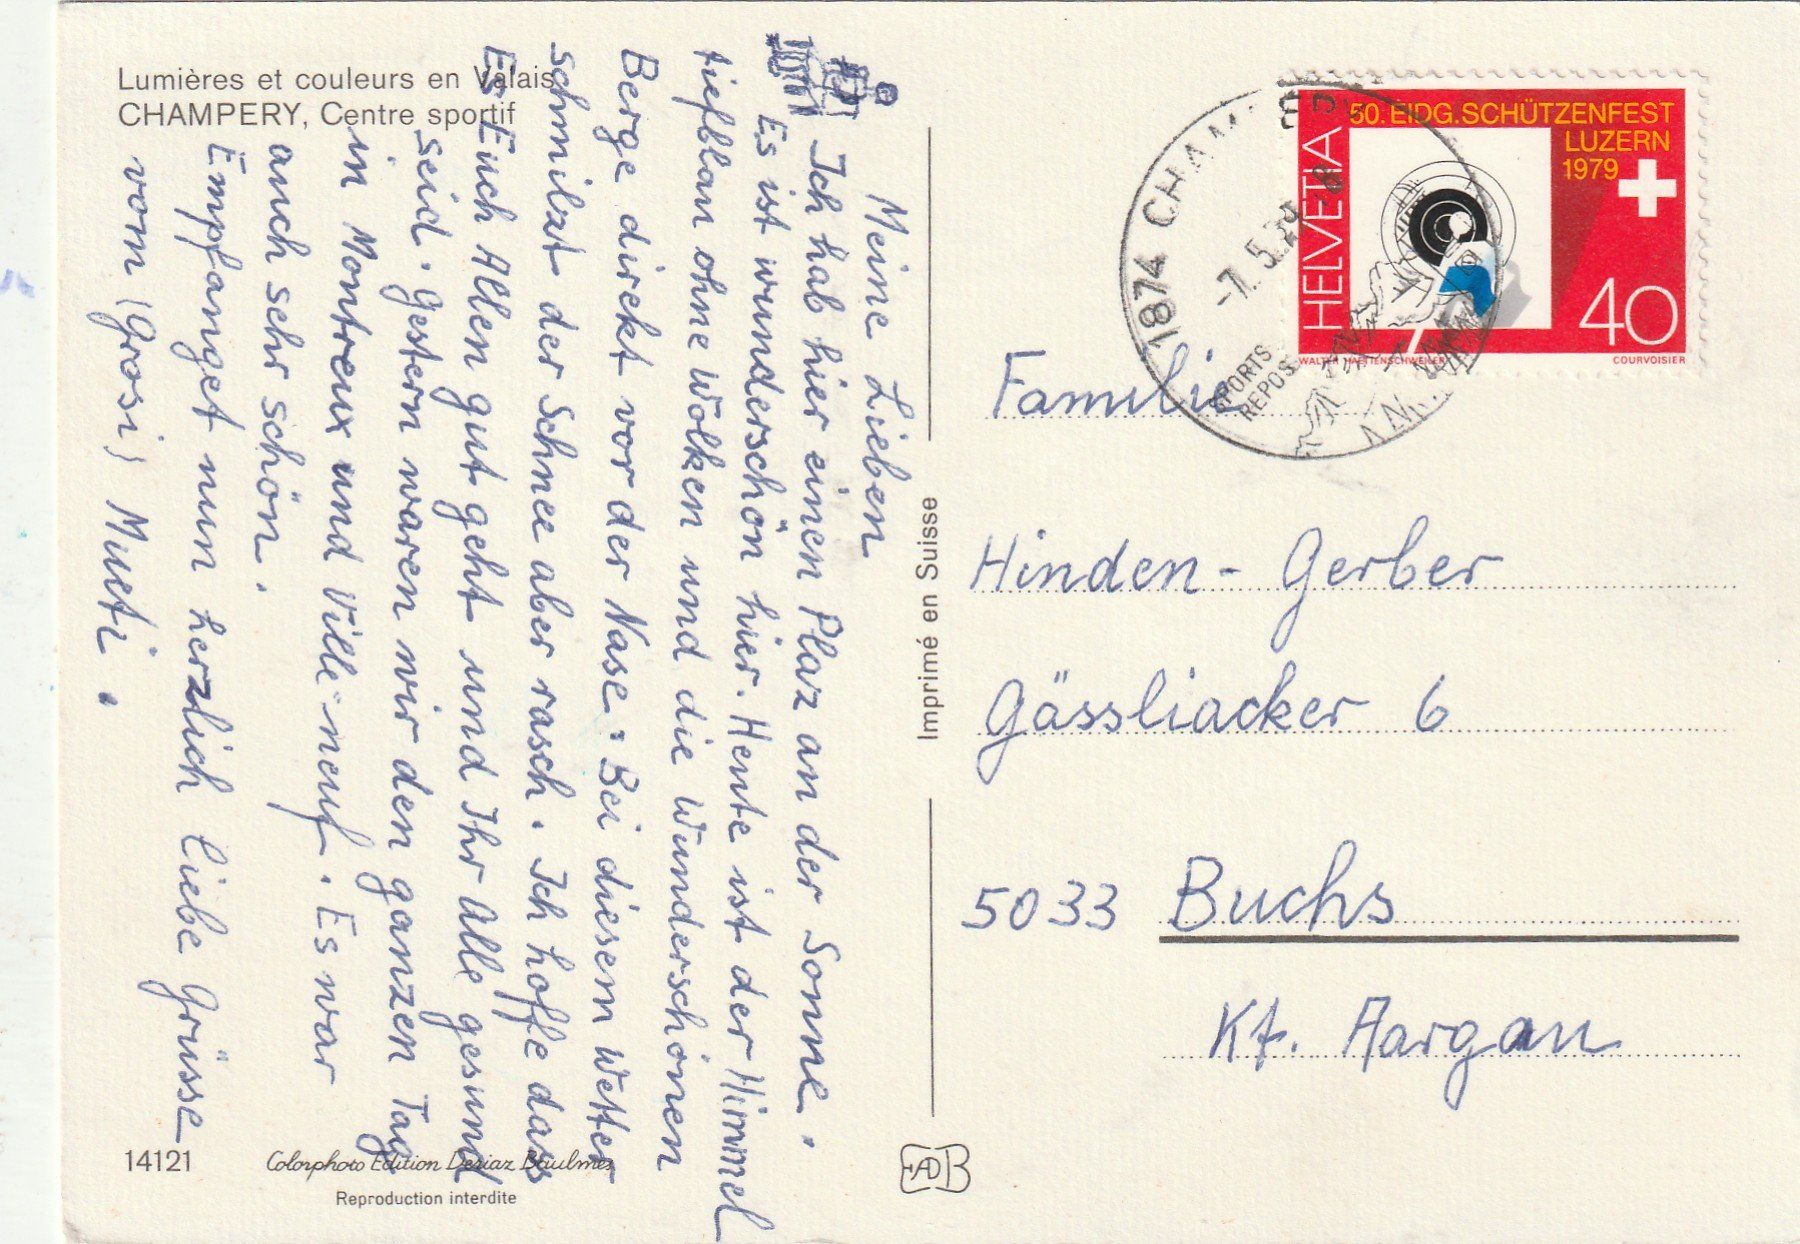 Lumières et couleurs en Valais
CHAMPERY, Centre sportif
Meine Lieben
Ich hab hier einen Plaz an der Sonne.
Es ist wunderschön hier. Heute ist der Himmel
tiefblau ohne Wolken und die Wunderschönen
Berge direkt vor der Nase. Bei diesem Wetter
schmilzt der Schnee aber rasch. Ich hoffe dass
Es Euch Allen gut geht und Ihr Alle gesund
seid. Gestern waren wir den ganzen Tag
in Montreux und Ville-neuf. Es war
auch sehr schön.
Empfanget nun herzlich liebe Grüsse
vom (Grosi) Mueti.
14121
Colorphoto Edition Deriaz Baulmes
Reproduction interdite
Imprimé en Suisse
EADB
1874 CHAMPERY
-7.5.79
SPORTS
REPOS
HELVETIA
50. EIDG. SCHÜTZENFEST
LUZERN
1979
40
WALTER HAETTENSCHWEILER
COURVOISIER
Familie
Hinden-Gerber
Gässliacker 6
5033 Buchs
Kt. Aargau